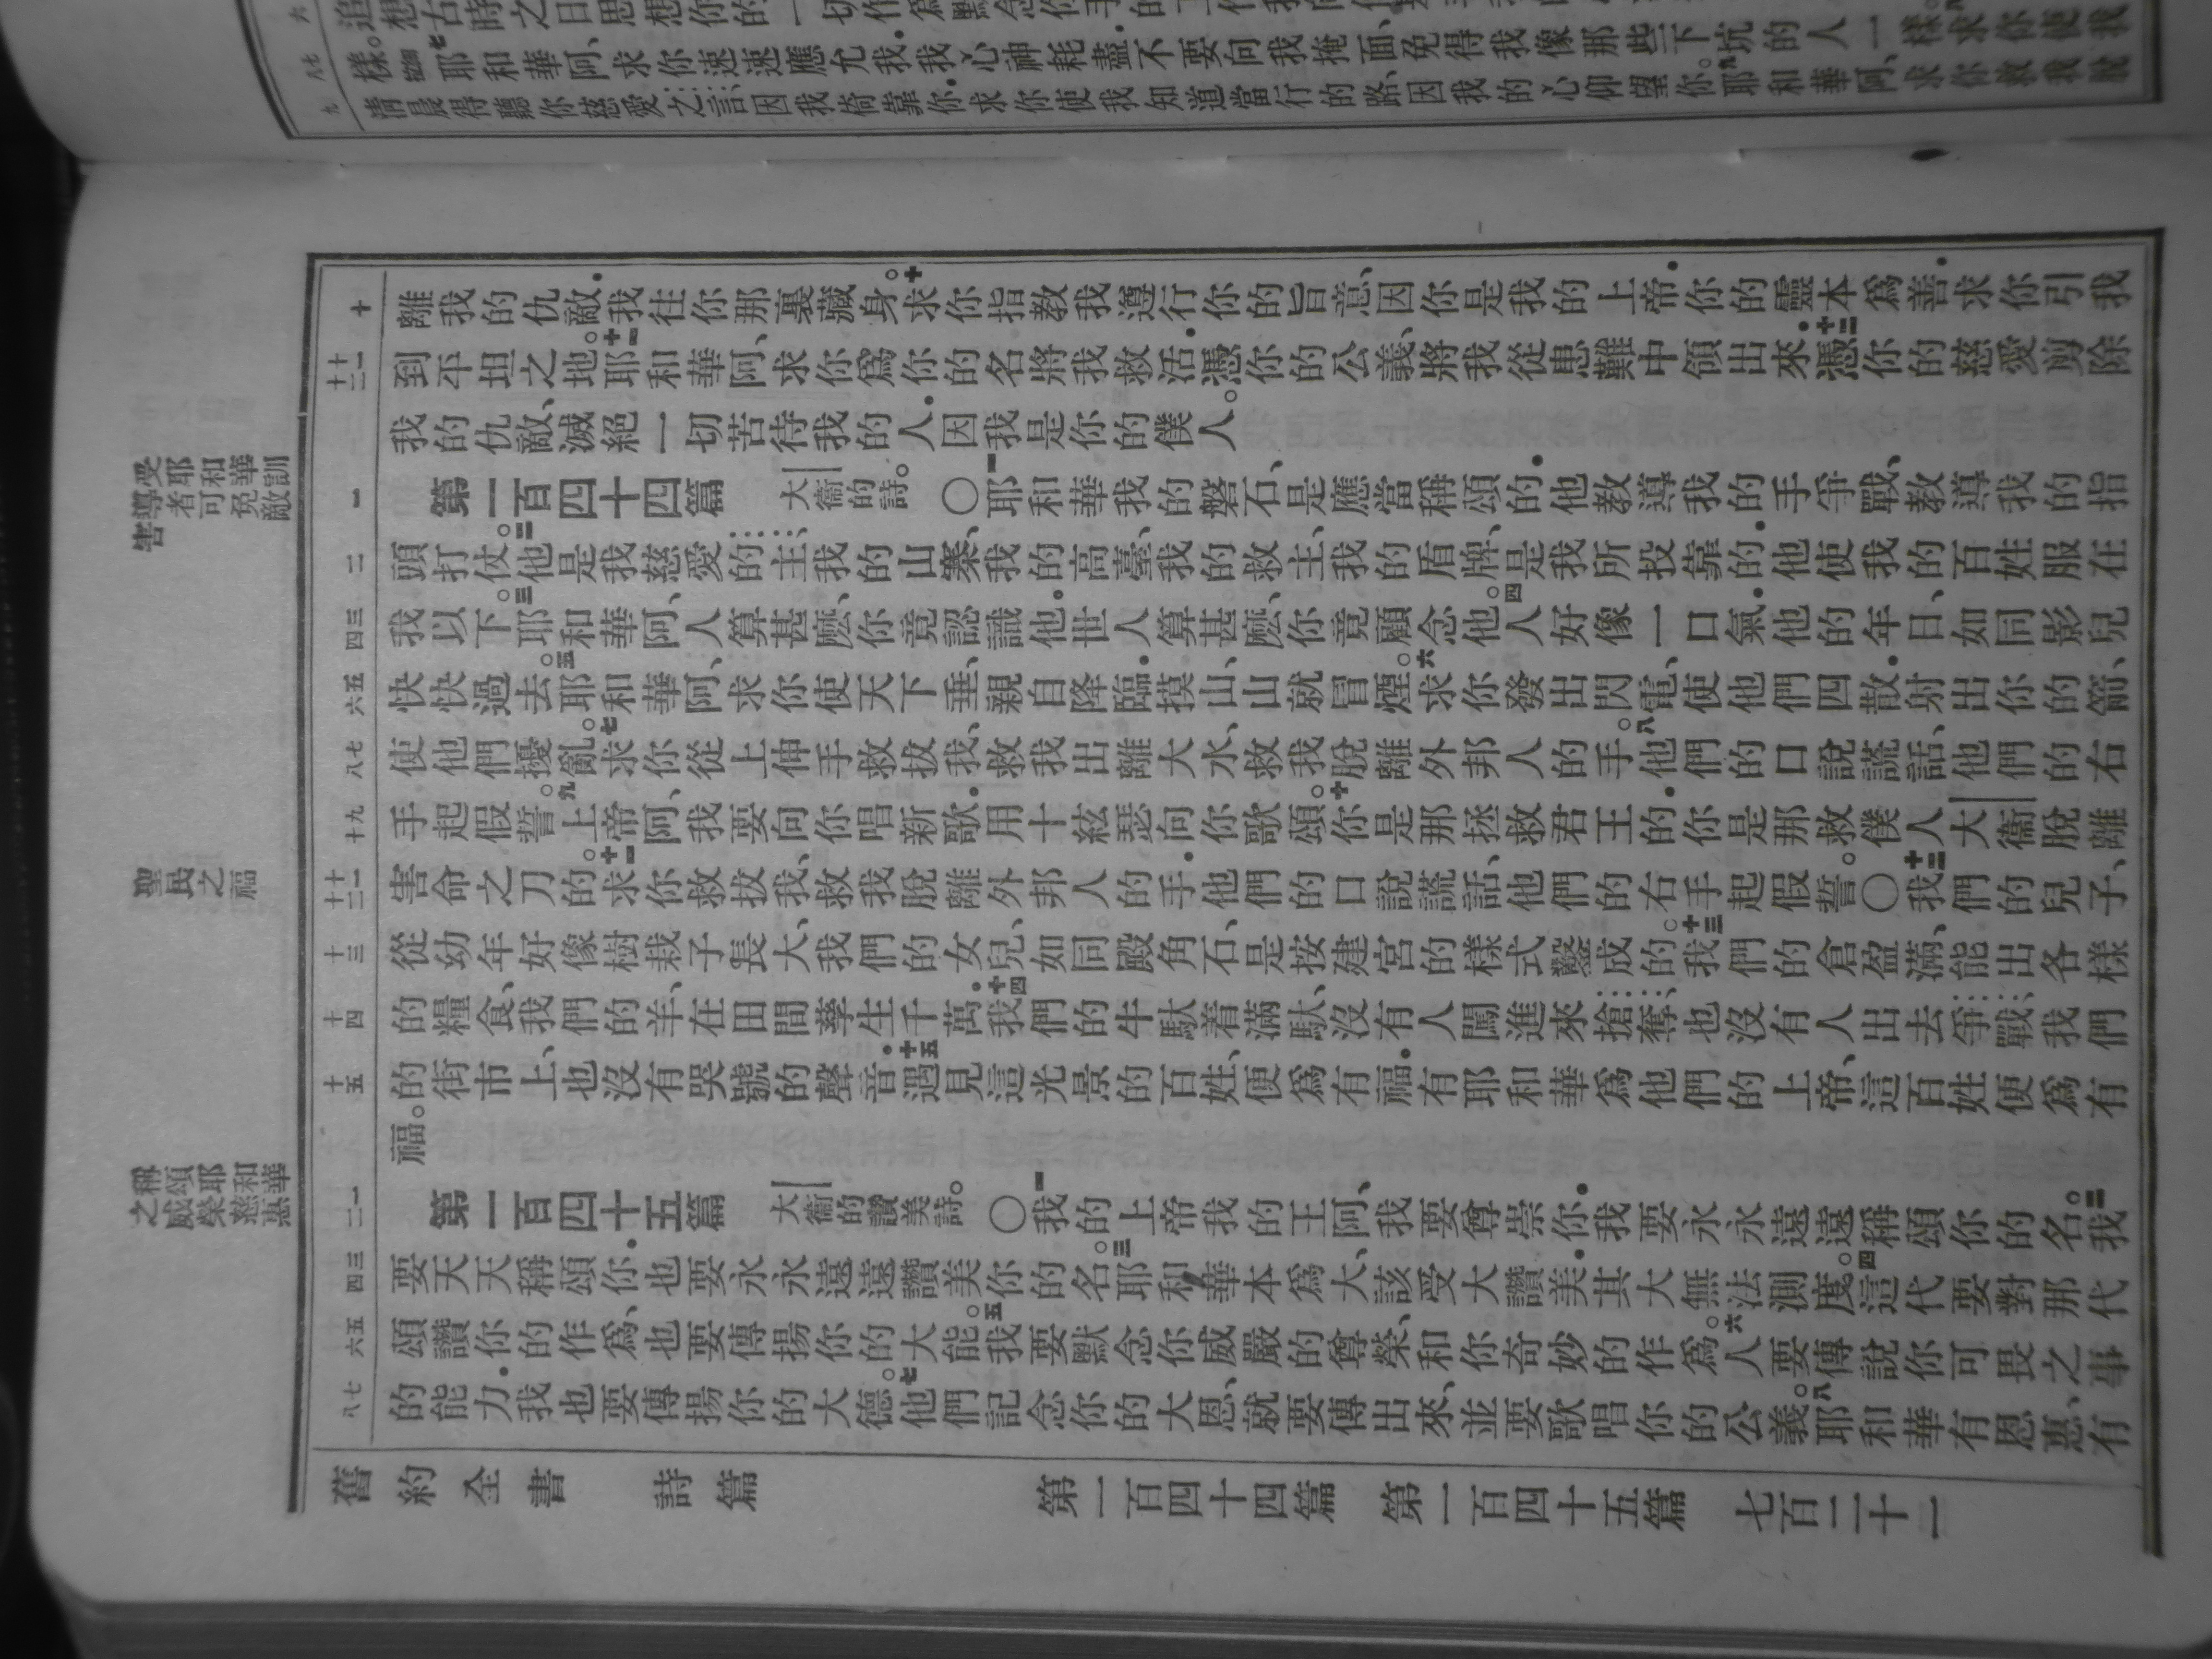 樣。耶和華阿、求你速速應允我．我心神耗盡不要向我掩面、免得我像那些下坑的人一樣。
清晨得聽你慈愛之言因我倚靠你．求你使我知道當行的路、因我的心仰望你。耶和華阿、求你救我脫
十
離我的仇敵．我往你那裏藏身。十求你指教我遵行你的旨意、因你是我的上帝．你的靈本爲善．求你引我
十一
十二
到平坦之地。十一耶和華阿、求你爲你的名將我救活．憑你的公義、將我從患難中領出來．十二憑你的慈愛剪除
我的仇敵、滅絕一切苦待我的人．因我是你的僕人。
受耶和華訓
導者可免敵
害
一
第一百四十四篇 大衞的詩。〇一耶和華我的磐石、是應當稱頌的．他教導我的手爭戰、教導我的指
二
頭打仗。二他是我慈愛的主、我的山寨、我的高臺、我的救主、我的盾牌、是我所投靠的．他使我的百姓服在
三
四
我以下。三耶和華阿、人算甚麽、你竟認識他．世人算甚麽、你竟顧念他。四人好像一口氣．他的年日、如同影兒
五
六
快快過去。五耶和華阿、求你使天下垂、親自降臨．摸山、山就冒煙。六求你發出閃電、使他們四散．射出你的箭、
七
八
使他們擾亂。七求你從上伸手救拔我、救我出離大水、救我脫離外邦人的手。八他們的口說謊話、他們的右
九
十
手起假誓。九上帝阿、我要向你唱新歌．用十絃瑟向你歌頌。十你是那拯救君王的．你是那救僕人大衞脫離
聖民之福
十一
十二
害命之刀的。十一求你救拔我、救我脫離外邦人的手．他們的口說謊話、他們的右手起假誓。〇十二我們的兒子、
十三
從幼年好像樹栽子長大、我們的女兒、如同殿角石、是按建宮的樣式鑿成的。十三我們的倉盈滿、能出各樣
十四
的糧食、我們的羊、在田間孳生千萬．十四我們的牛馱着滿馱、沒有人闖進來搶奪、也沒有人出去爭戰、我們
十五
的街市上、也沒有哭號的聲音．十五遇見這光景的百姓、便爲有福．有耶和華爲他們的上帝、這百姓便爲有
福。
稱頌耶和華
之威榮慈惠
一
二
第一百四十五篇 大衞的讚美詩。〇一我的上帝我的王阿、我要尊崇你．我要永永遠遠稱頌你的名。二我
三
四
要天天稱頌你．也要永永遠遠讚美你的名。三耶和華本爲大、該受大讚美．其大無法測度。四這代要對那代
五
六
頌讚你的作爲、也要傳揚你的大能。五我要默念你威嚴的尊榮、和你奇妙的作爲。六人要傳說你可畏之事
七
八
的能力．我也要傳揚你的大德。七他們記念你的大恩、就要傳出來、並要歌唱你的公義。八耶和華有恩惠、有
舊約全書 詩篇 第一百四十四篇 第一百四十五篇 七百二十一